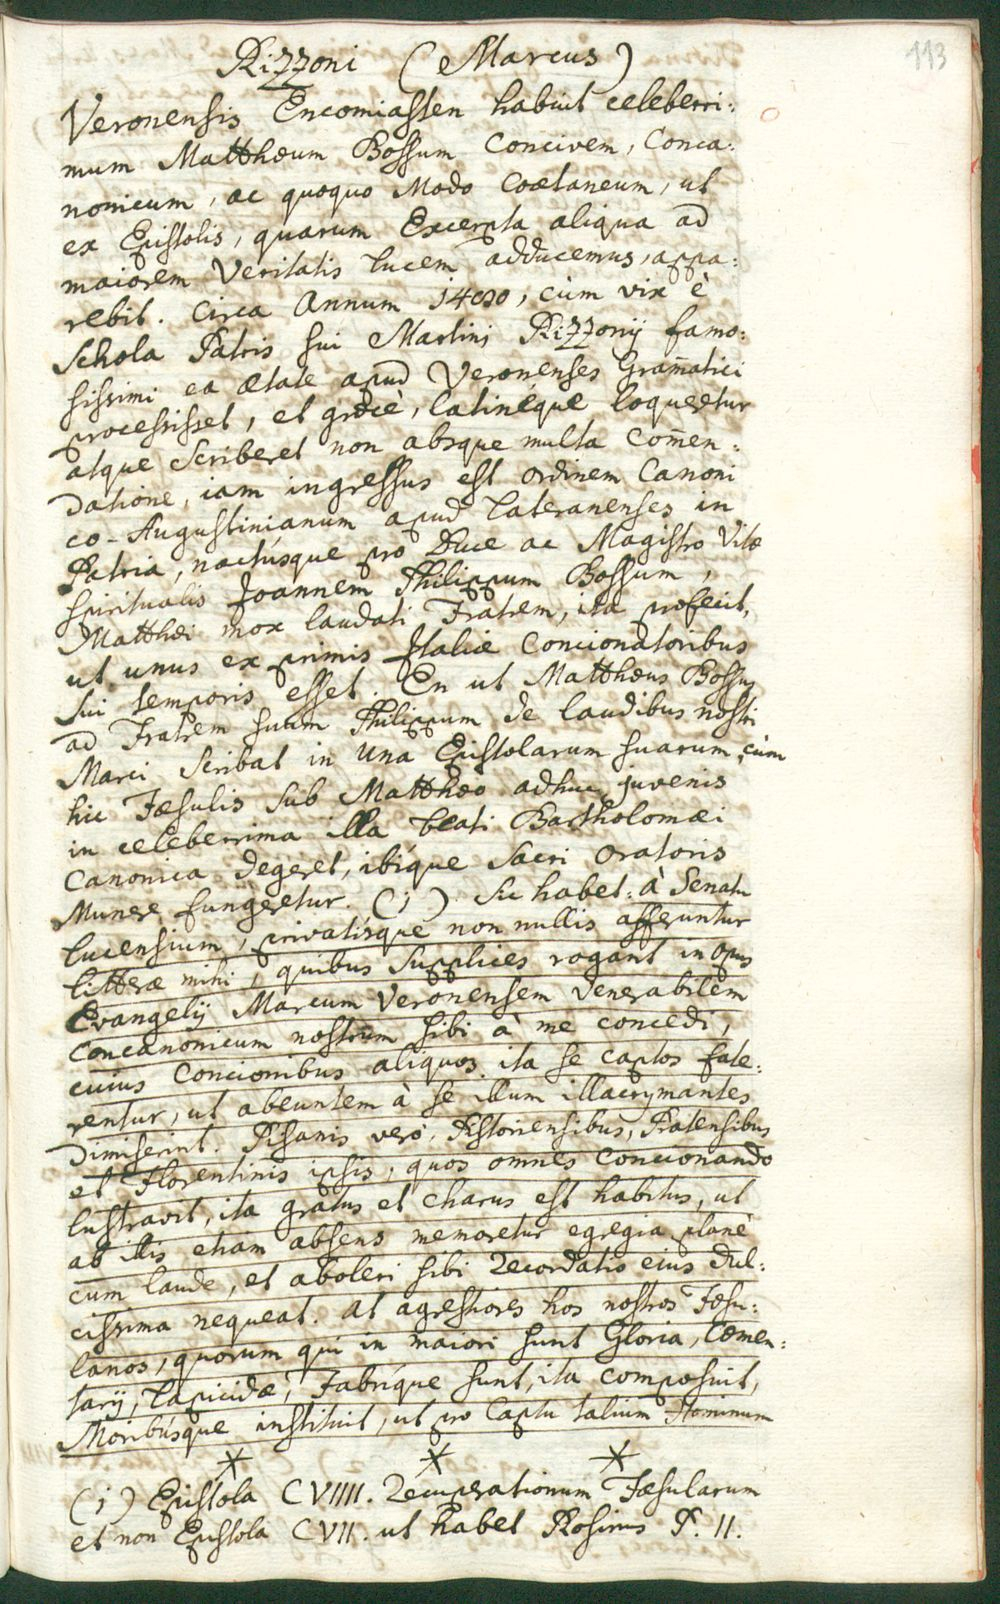 113
Rizzoni (Marcus)
Veronensis Encomiasten habuit celeberri:
mum Matthæum Bossum Concivem, Conca:
nonicum, ac quoquo Modo Coætaneum, ut
ex Epistolis, quarum Excerpta aliqua ad
maiorem Veritatis lucem adducemus, appa:
rebit. Circa Annum, cùm vix è
Schola Patris sui Martini Rizzonij famo:
sissimi ea ætate apud Veronenses Gram̄atici
processisset, et græcè, latinéque loqueretur
atque scriberet non absque multa Com̄en:
datione, iam ingressus est Ordinem Canoni
co-Augustinianum apud Lateranenses in
Patria, nactúsque pro Duce ac Magistro Vitæ
spiritualis Joannem Philippum Bossum,
Matthæi mox laudati Fratrem, ita profecit,
ut unus ex primis Italiæ Concionatoribus
sui temporis esset. En ut Matthæus Bossus
ad Fratrem suum Philippum de laudibus nostri
Marci scribat in una Epistolarum suarum, cùm
hic Fæsulis sub Matthæo adhuc juvenis
in celeberrima illa beati Bartholomæi
Canonica degeret, ibíque Sacri Oratoris
Munere fungeretur. (1) Sic habet: à Senatu
lucensium, privatísque non nullis afferuntur
litteræ mihi, quibus supplices rogant in opus
Evangelij Marcum Veronensem venerabilem
Concanonicum nostrum sibi à me concedi,
cuius Concionibus aliquos ita se captos fate:
rentur, ut abeuntem à se illum illacrymantes
dimiserint. Pisanis verò, Pistoriensibus, Pratensibus
et Florentinis ipsis, quos omnes concionando
lustravit, ita gratus et charus est habitus, ut
ab illis etiam absens memoretur egregia planè
cum laude, et aboleri sibi recordatio eius dul:
cissima nequeat. At agrestiores hos nostros Fæsu:
lanos, quorum qui in maiori sunt Gloria, Cæmen:
tarij, Lapicidæ, Fabríque sunt, ita composuit,
Moribúsque instituit, ut pro Captu talium Hominum
* * *
(1) Epistola CVIIII. Recuperationum Fæsularum
et non Epistola CVII. ut habet Rosinus P. II.